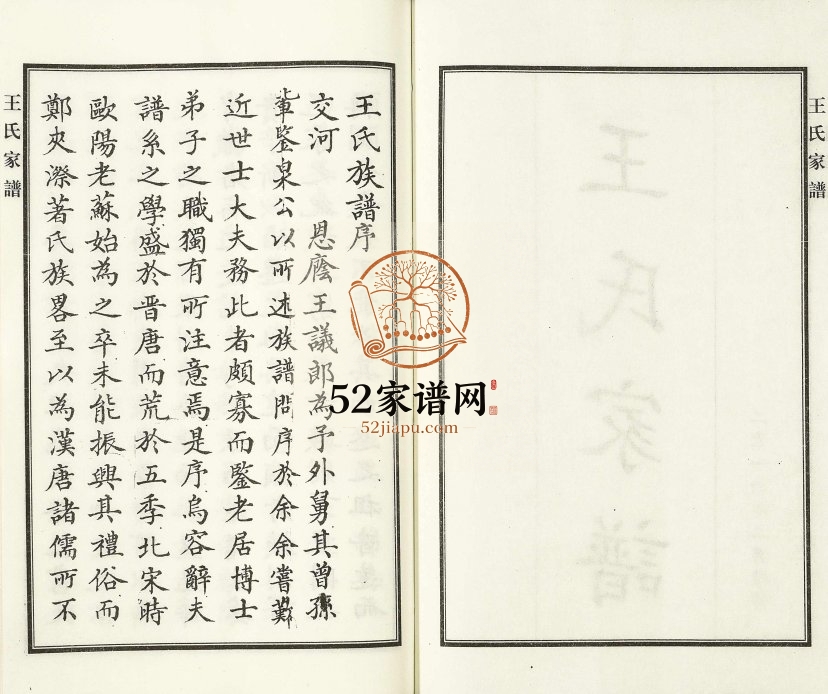 王氏家譜
王氏家譜
王氏族譜序
交河 恩廕王議郎為予外舅其曾孫
輩鑒泉公以所述族譜問序於余余嘗歎
近世士大夫務此者頗寡而鑒老居博士
弟子之職獨有所注意焉是序烏容辭夫
譜系之學盛於晉唐而荒於五季北宋時
歐陽老蘇始為之卒未能振興其禮俗而
鄭夾漈著氏族畧至以為漢唐諸儒所不
王氏家譜
52家谱网
52jiapu.com